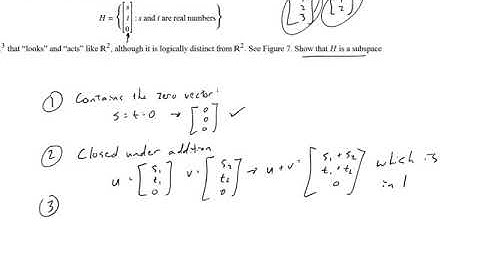 H = { [ s t 0 ] : s and t are real numbers }
[ 1 2 3 ] [ 1 2 ]
³ that "looks" and "acts" like R², although it is logically distinct from R². See Figure 7. Show that H is a subspace
① Contains the zero vector:
s = t = 0 → [ 0 0 0 ] ✓
② Closed under addition
u = [ s₁ t₁ 0 ] v = [ s₂ t₂ 0 ] → u + v = [ s₁ + s₂ t₁ + t₂ 0 ] which is
in
③